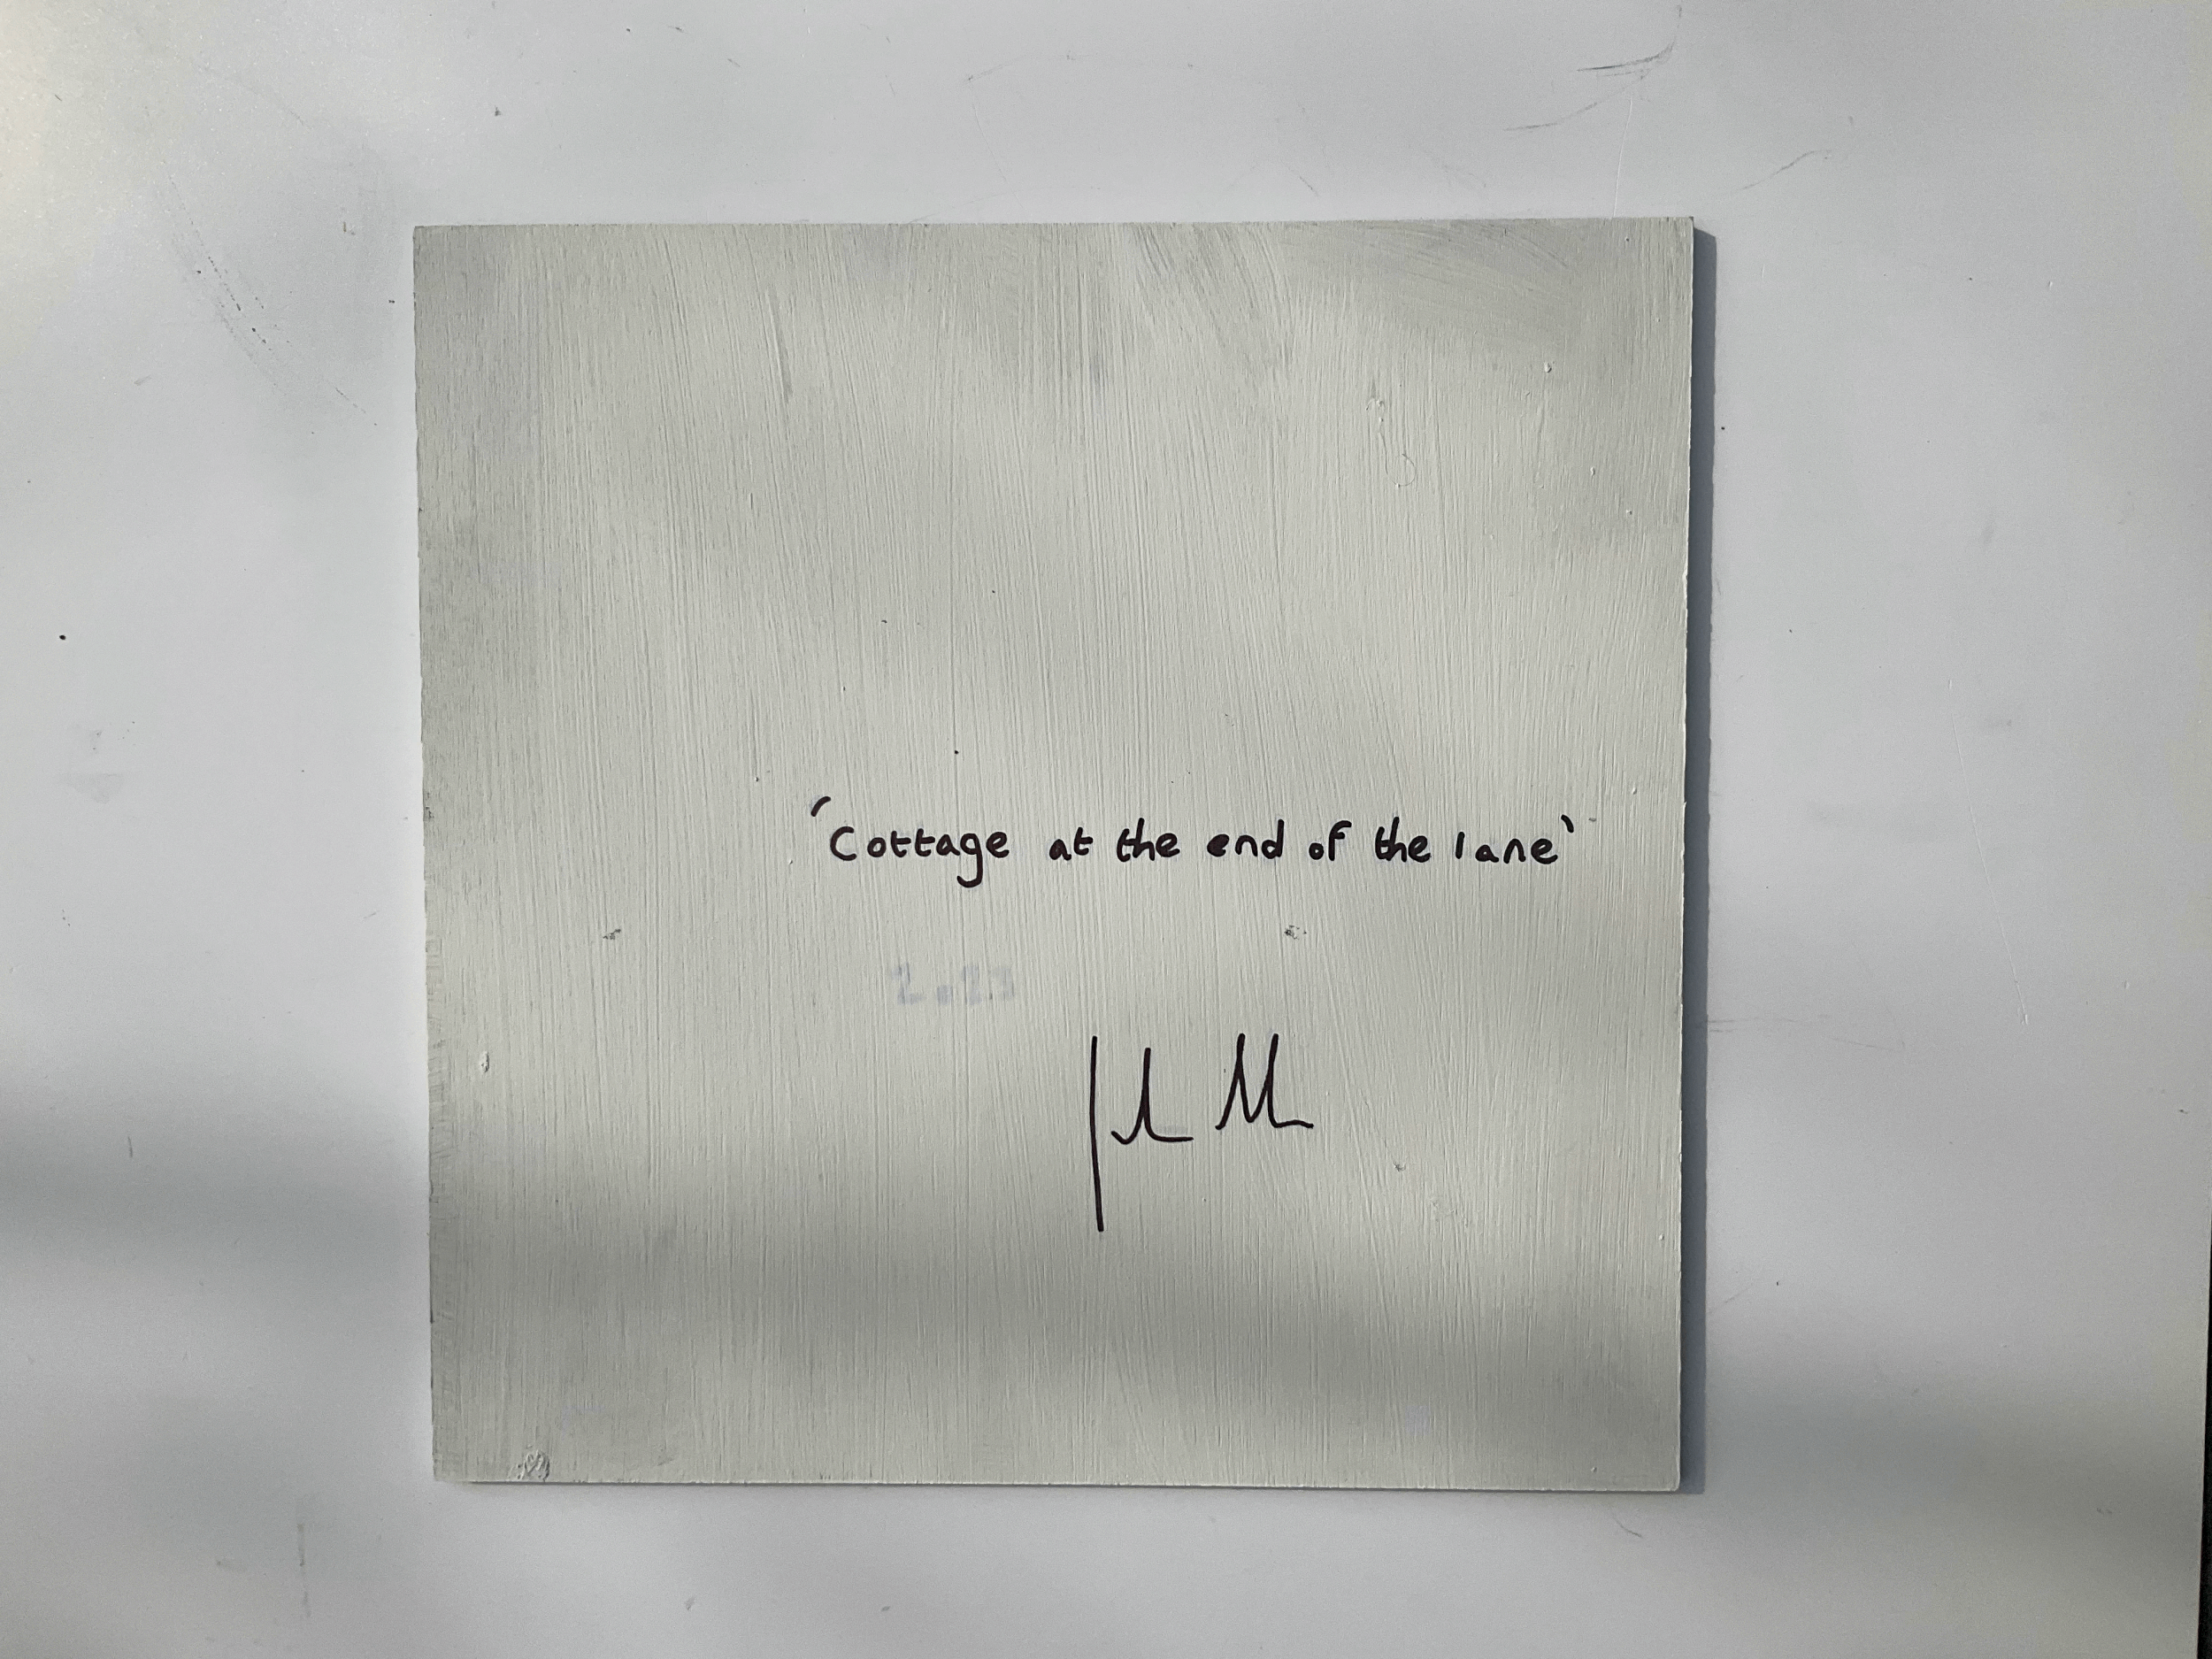 'Cottage at the end of the lane'